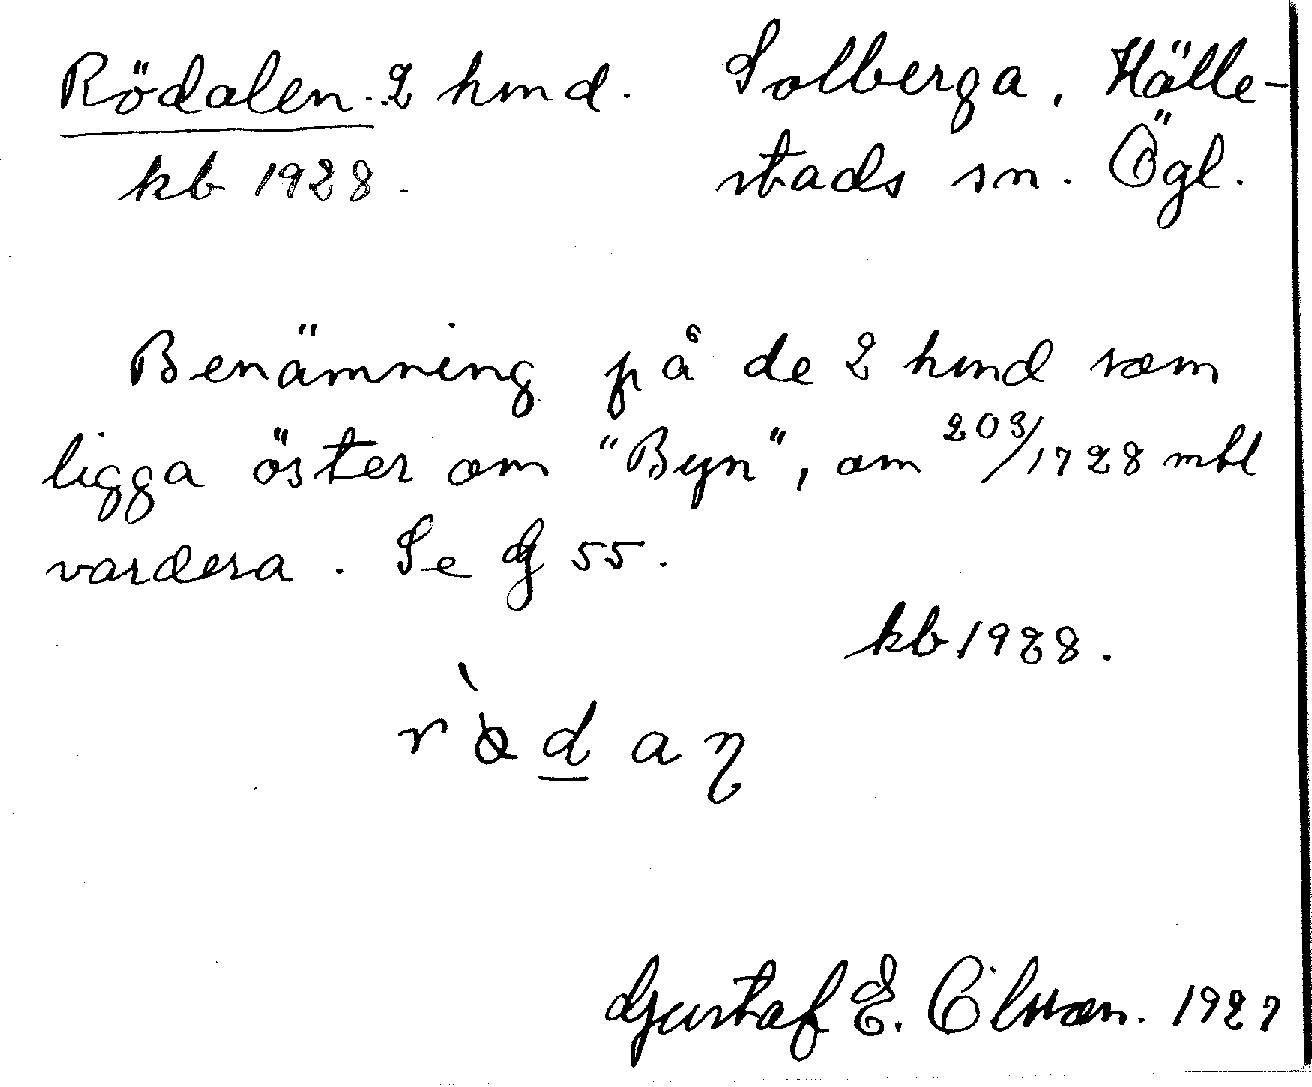 Rödalen. 2 hmd. Solberga, Hälle-
kb 1928. stads sn. Ögl.
Benämning på de 2 hmd som
ligga öster om "Byn", om 203/1728 mtl
vardera. Se G 55.
kb 1928.
Gustaf E. Olsson. 1927